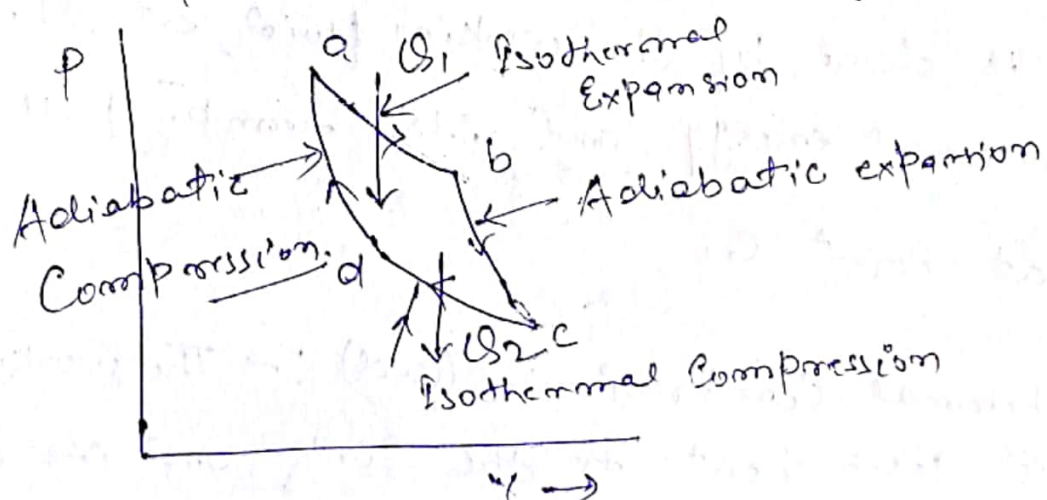 P
a
Q1
Isothermal
Expansion
b
Adiabatic expansion
Adiabatic
Compression.
d
Q2
c
Isothermal Compression